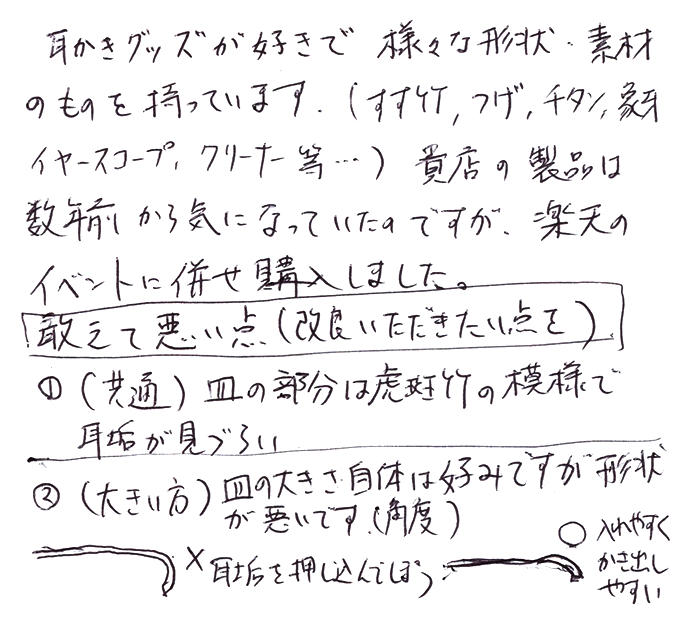 耳かきグッズが好きで 様々な形状・素材
のものを持っています.(すす竹,つげ,チタン,象牙
イヤースコープ,クリーナー等…)貴店の製品は
数年前から気になっていたのですが、楽天の
イベントに併せ購入しました。
敢えて悪い点(改良いただきたい点を)
①(共通)皿の部分は虎斑竹の模様で
耳垢が見づらい
②(大きい方)皿の大きさ自体は好みですが形状
が悪いです.(角度)
×耳垢を押し込んでしまう
○入れやすく
かき出し
やすい